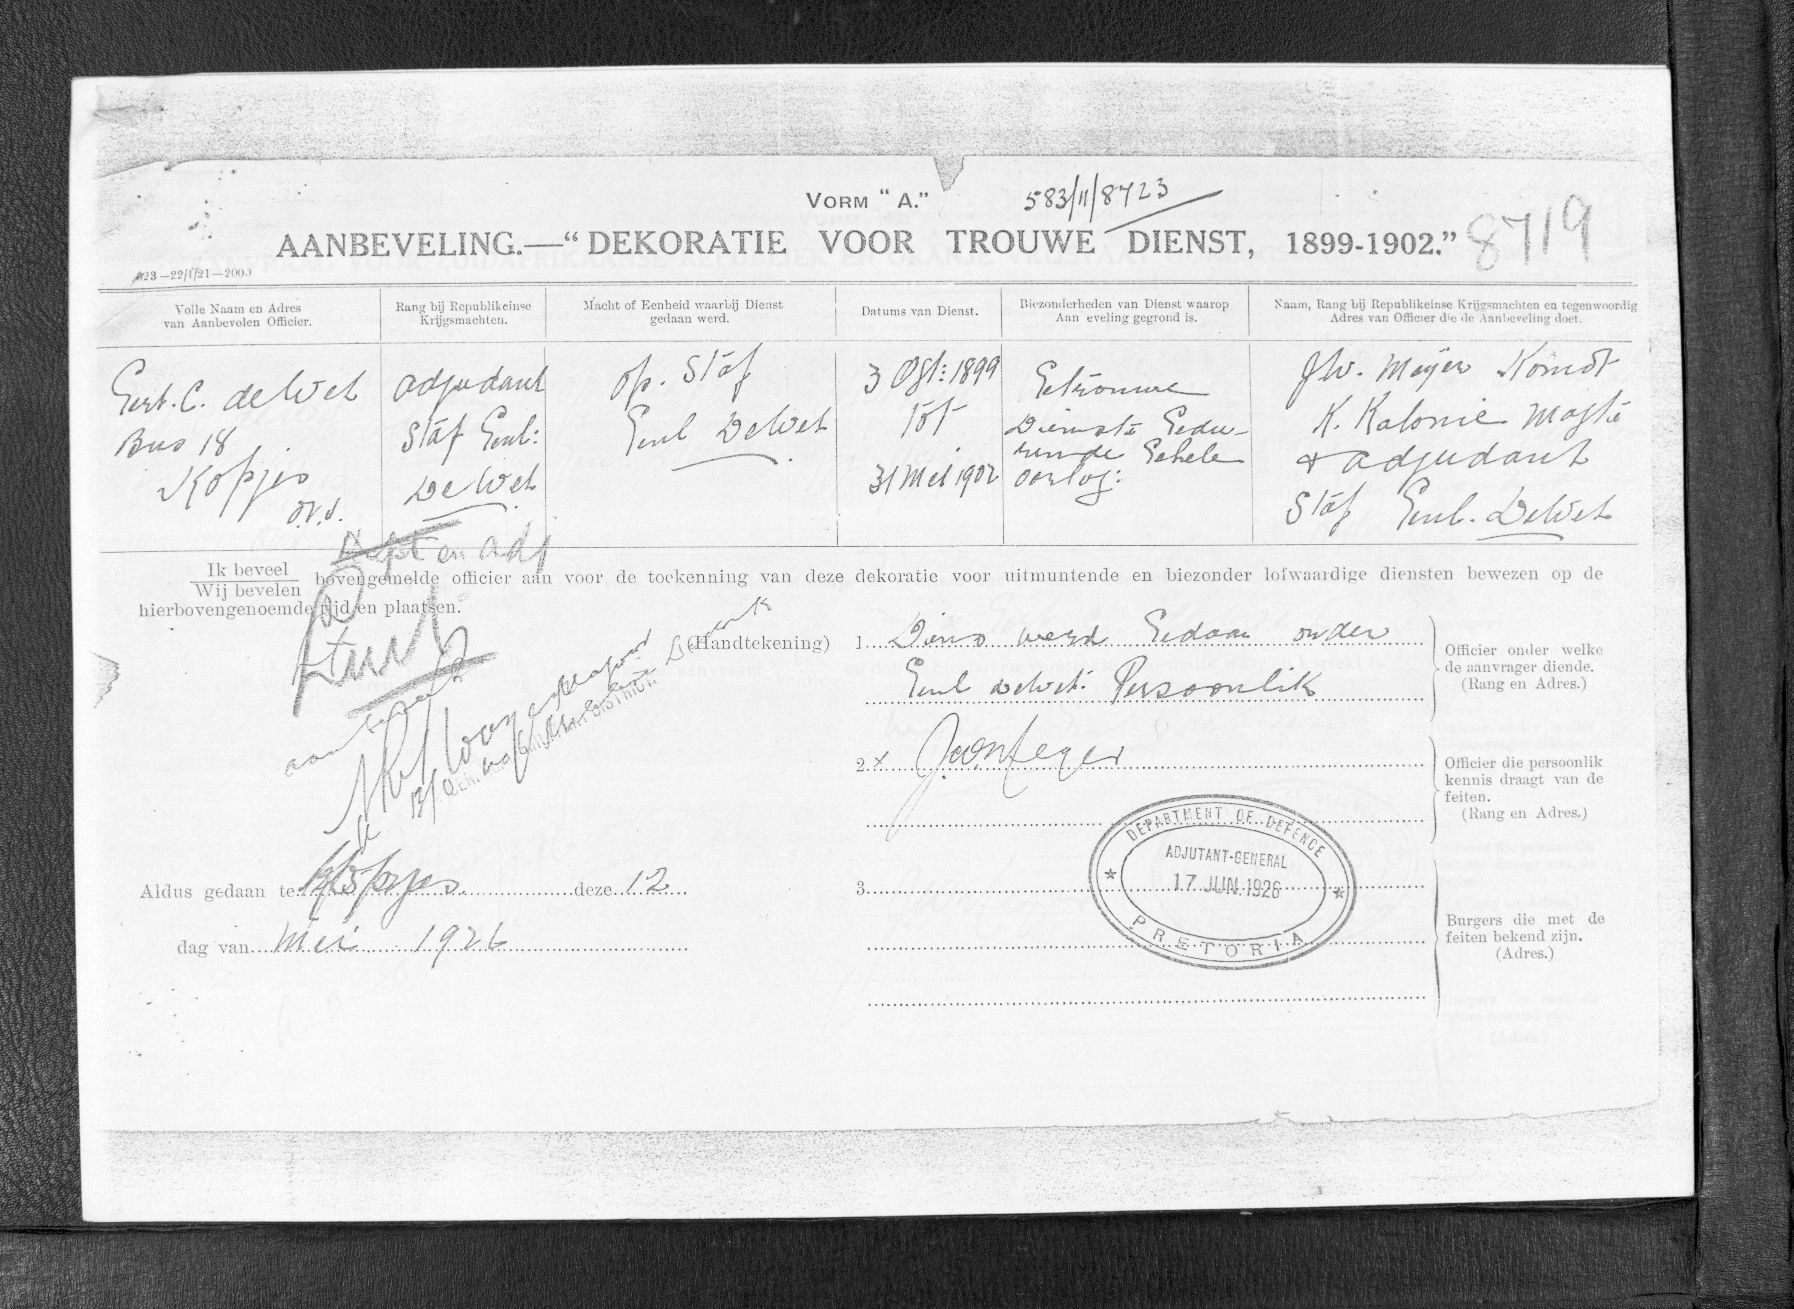 VORM "A."
583/11/8723
AANBEVELING.—"DEKORATIE VOOR TROUWE DIENST, 1899-1902."
8719
A23—22/1/21—2000
Volle Naam en Adres van Aanbevolen Officier.
Rang bij Republikeinse Krijgsmachten.
Macht of Eenheid waarbij Dienst gedaan werd.
Datums van Dienst.
Biezonderheden van Dienst waarop Aan eveling gegrond is.
Naam, Rang bij Republikeinse Krijgsmachten en tegenwoordig Adres van Officier die de Aanbeveling doet.
Gert. C. de Wet
Bus 18
Kopjes
O.V.S.
adjudant
Staf Genl:
De Wet
op. Staf
Genl De Wet
3 Okt: 1899
Tot
31 Mei 1902
Getrouwe
Dienste Gedu-
rende Gehele
oorlog:
J.W. Meyer Komdt
K. Kolonie Magte
+ adjudant
Staf Genl. De Wet
Kapt en adj
Ik beveel
Wij bevelen
bovengemelde officier aan voor de toekenning van deze dekoratie voor uitmuntende en biezonder lofwaardige diensten bewezen op de
hierbovengenoemde tijd en plaatsen.
(Handtekening)
1. Diens werd Gedaan onder
Genl De Wet. Persoonlik
Officier onder welke
de aanvrager diende.
(Rang en Adres.)
2. x J.W. Meyer
Officier die persoonlik
kennis draagt van de
feiten.
(Rang en Adres.)
3.
Burgers die met de
feiten bekend zijn.
(Adres.)
DEPARTMENT OF DEFENCE
ADJUTANT-GENERAL
17 JUN. 1926
PRETORIA
Aldus gedaan te Kopjes deze 12
dag van Mei 1926